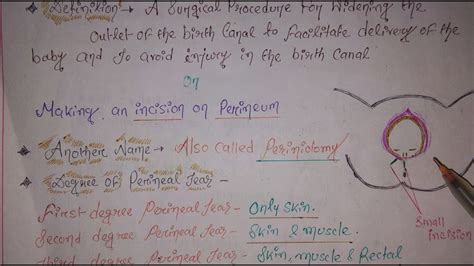 Definition → A Surgical Procedure For Widening the
Outlet of the birth Canal to facilitate delivery of the
baby and to avoid injury in the birth Canal
Or
Making an incision on Perineum
Another Name → Also called Periniotomy
Degree of Perineal Tear -
First degree Perineal Tear - Only Skin.
Second degree Perineal Tear - Skin & muscle.
Third degree Perineal Tear - Skin, muscle & Rectal
Small
incision